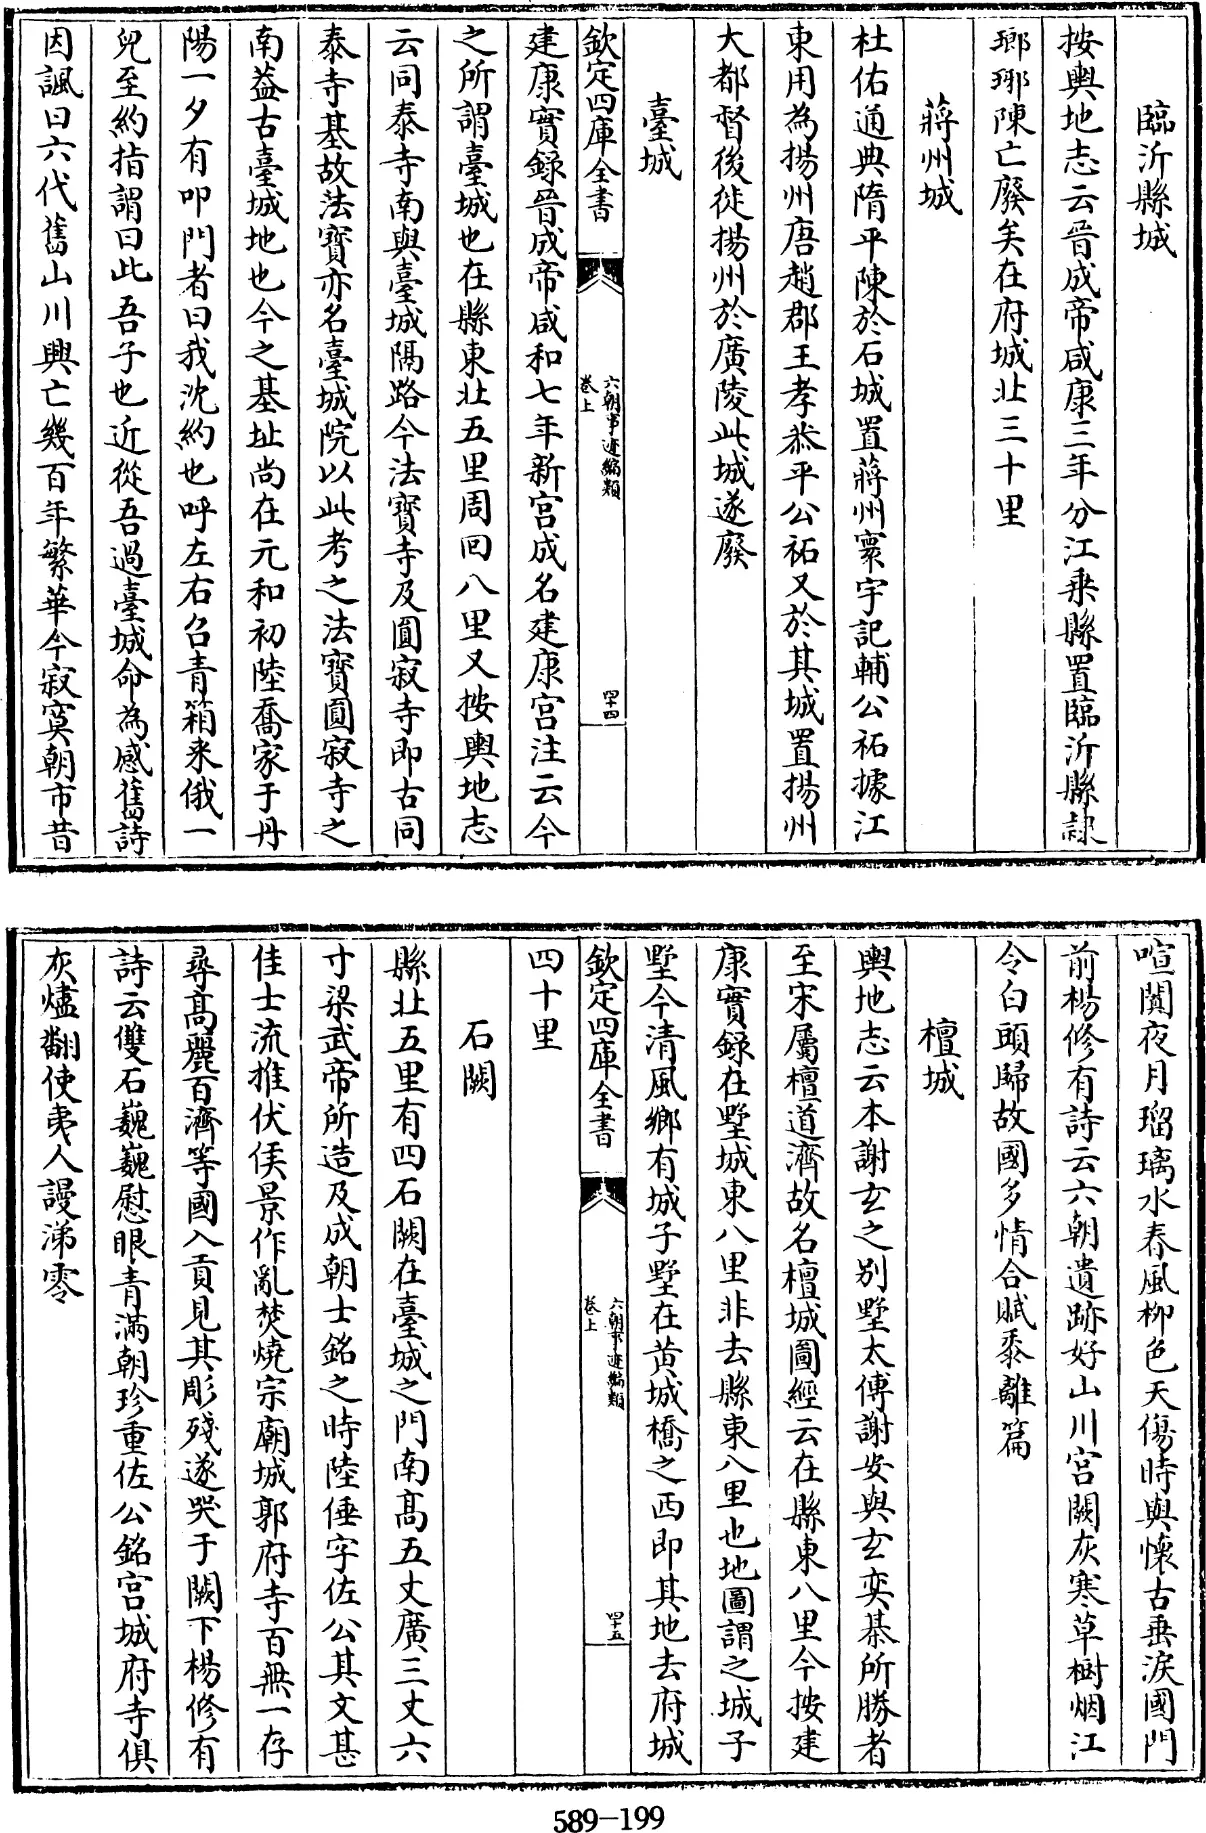 臨沂縣城
按輿地志云晉成帝咸康三年分江乗縣置臨沂縣隷
瑯琊陳亡廢矣在府城北三十里
蔣州城
杜佑通典隋平陳於石城置蔣州寰宇記輔公祏據江
東用為揚州唐趙郡王孝恭平公祏又於其城置揚州
大都督後徙揚州於廣陵此城遂廢
臺城
欽定四庫全書
六朝事迹編類
卷上
四十四
建康實錄晉成帝咸和七年新宮成名建康宮注云今
之所謂臺城也在縣東北五里周回八里又按輿地志
云同泰寺南與臺城隔路今法寶寺及圓寂寺即古同
泰寺基故法寶亦名臺城院以此考之法寶圓寂寺之
南葢古臺城地也今之基址尚在元和初陸喬家于丹
陽一夕有叩門者曰我沈約也呼左右召青箱来俄一
兒至約指謂曰此吾子也近從吾過臺城命為感舊詩
因諷曰六代舊山川興亡幾百年繁華今寂寞朝市昔
喧闐夜月瑠璃水春風柳色天傷時與懐古垂淚國門
前楊修有詩云六朝遺跡好山川宮闕灰寒草樹烟江
令白頭歸故國多情合賦黍離篇
檀城
輿地志云本謝玄之别墅太傅謝安與玄奕棊所勝者
至宋屬檀道濟故名檀城圖經云在縣東八里今按建
康實錄在墅城東八里非去縣東八里也地圖謂之城子
墅今清風鄉有城子墅在黄城橋之西即其地去府城
欽定四庫全書
六朝事迹編類
卷上
四十五
四十里
石闕
縣北五里有四石闕在臺城之門南髙五丈廣三丈六
寸梁武帝所造及成朝士銘之時陸倕字佐公其文甚
佳士流推伏侯景作亂焚燒宗廟城郭府寺百無一存
尋髙麗百濟等國入貢見其彫殘遂哭于闕下楊修有
詩云雙石巍巍慰眼青滿朝珍重佐公銘宮城府寺俱
灰燼翻使夷人謾涕零
589-199